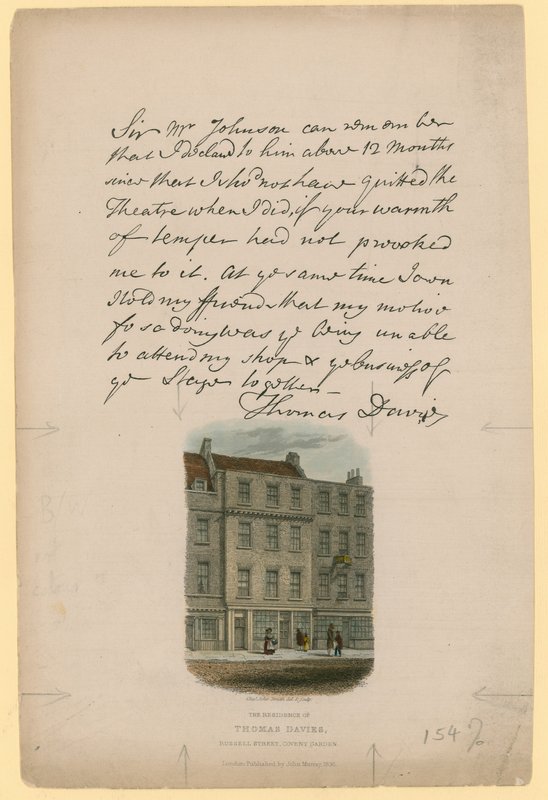 Sir Mr Johnson can remember
that I declard to him above 12 Months
since that I shod not have quitted the
Theatre when I did, if your warmth
of temper had not provoked
me to it. At ye same time I own
I told my friends that my motive
for so doing was ye being unable
to attend my shop & ye business of
ye Stage together
Thomas Davies
THE RESIDENCE OF
THOMAS DAVIES,
RUSSELL STREET, COVENT GARDEN.
London: Published by John Murray, 1836.
154